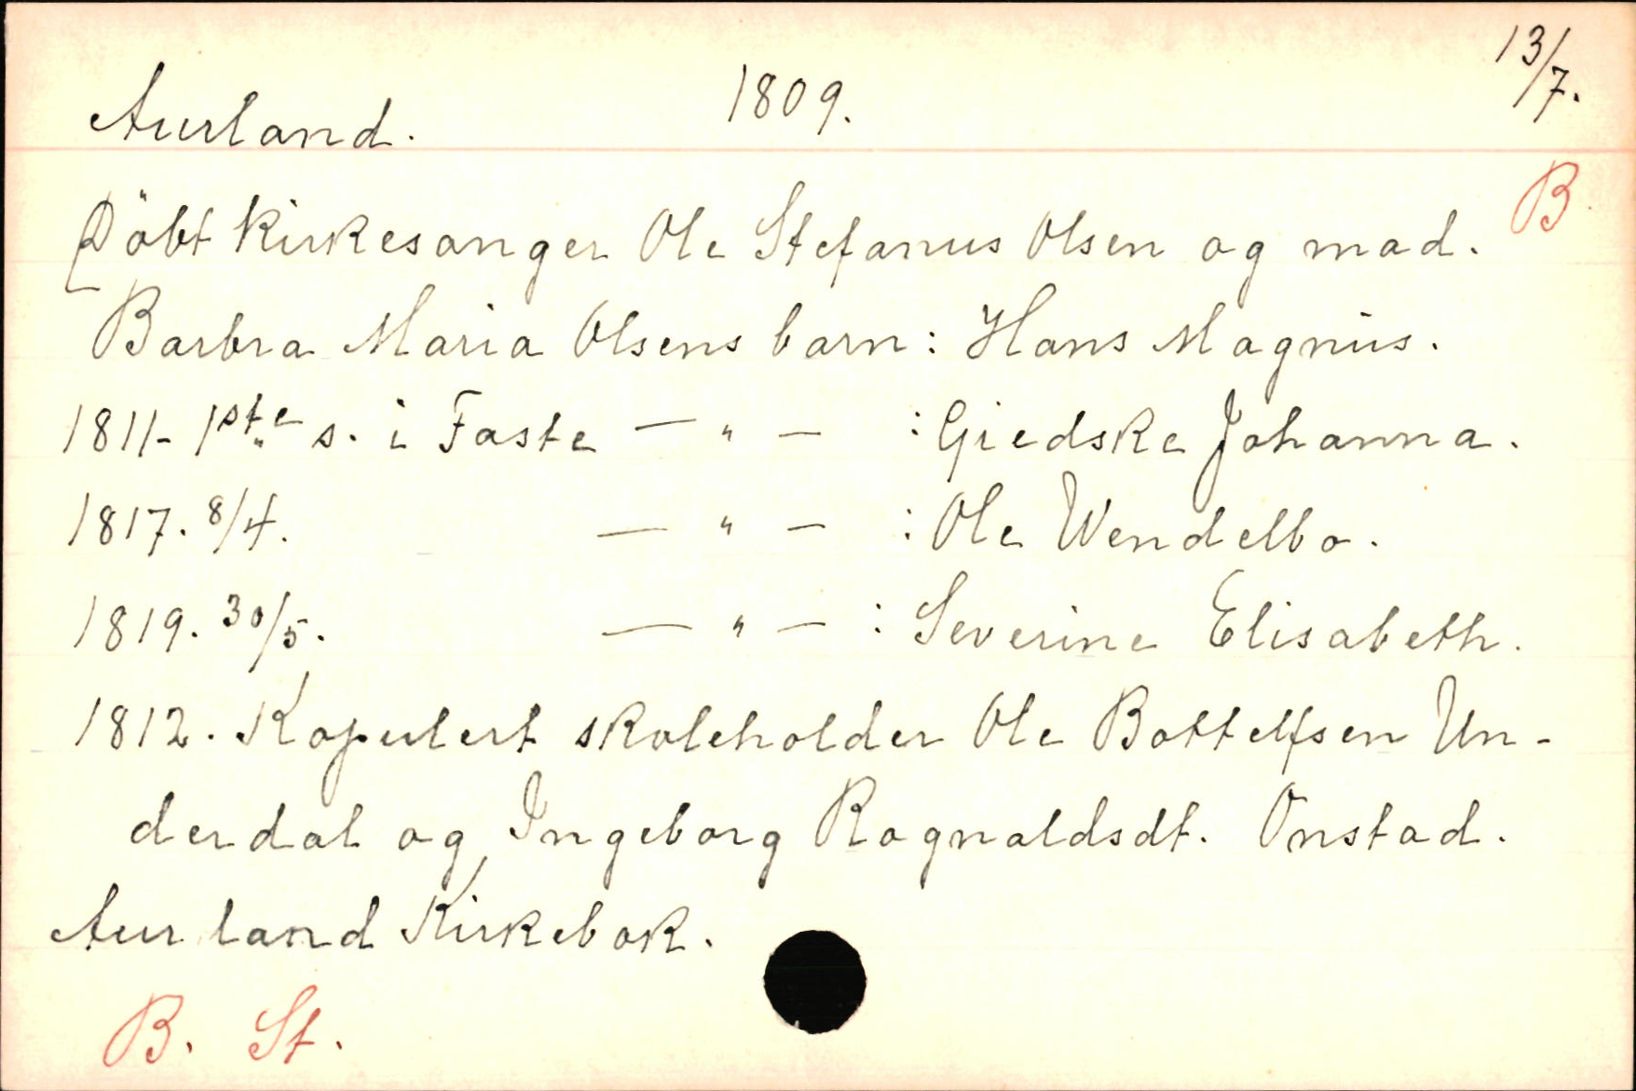 Aurland. 1809. 13/7.
B
Döbt kirkesanger Ole Stefanus Olsen og mad.
Barbra Maria Olsens barn: Hans Magnus.
1811- 1ste s. i Faste — " — : Giedske Johanna.
1817. 8/4. — " — : Ole Wendelbo.
1819. 30/5. — " — : Severine Elisabeth.
1812. Kopulert skoleholder Ole Bottelfsen Un-
derdal og Ingeborg Rognaldsdt. Onstad.
Aurland Kirkebok.
B. St.